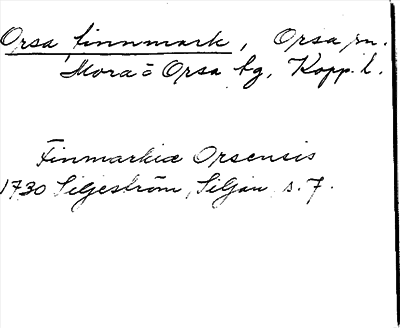 Orsa finnmark, Orsa sn.
Mora o Orsa tg, Kopp. l.
Finmarkiæ Orsensis
1730 Siljeström, Siljan s. 7.